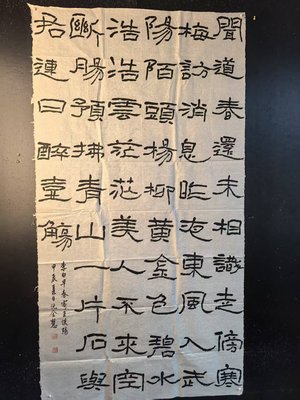 聞道春還未相識走傍寒
梅訪消息昨夜東風入武
陽陌頭楊柳黃金色碧水
浩浩雲茫茫美人不來空
斷腸預拂青山一片石與
君連日醉壺觴
李白早春寄王漢陽
甲辰夏日